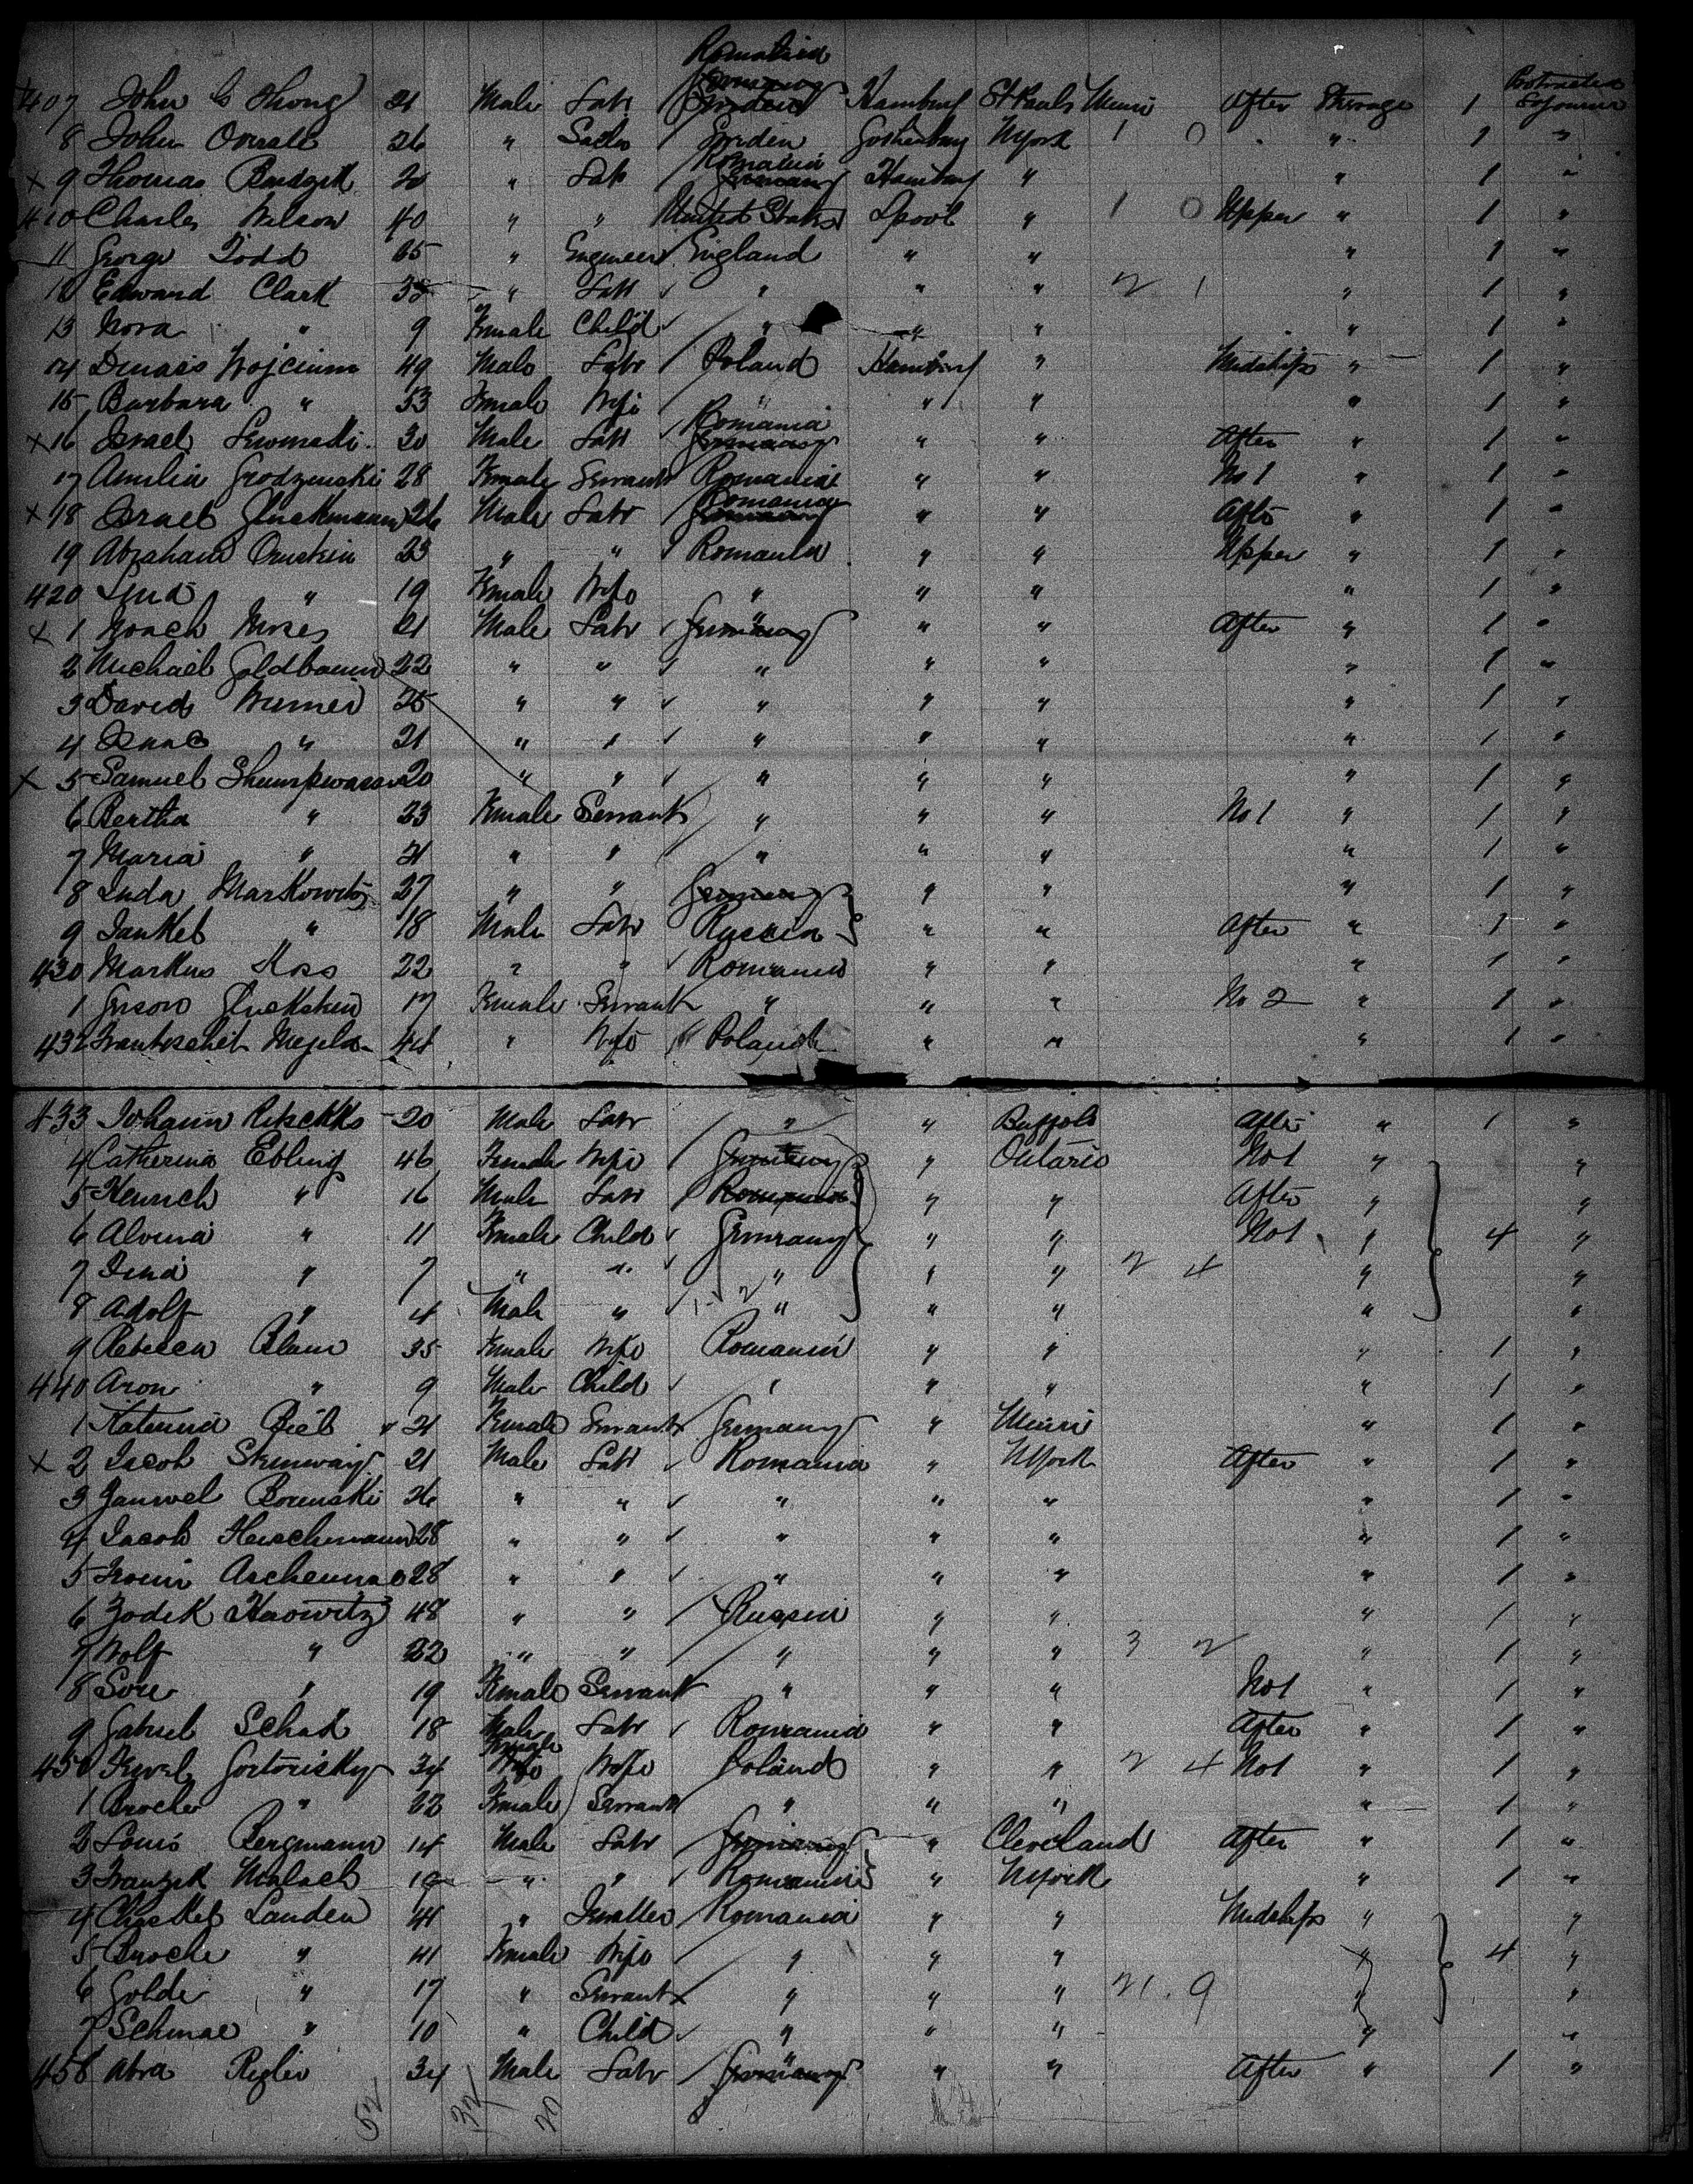 Romania
Germany Contracted
407 John G Thong 21 Male Labr Sweden Hamburg St Pauls Minn After Steerage 1 Sojourn
8 John Overall 26 " Sailor Sweden Gothenburg NYork 1 0 " 1 "
Romania
x 9 Thomas Budzek 20 " Labr Germany Hamburg " " 1 "
410 Charles Wilson 40 " " United States Lpool " 1 0 Upper " 1 "
11 George Todd 65 " Engineer England " " " 1 "
12 Edward Clark 35 " Labr " " " 2 1 " 1 "
13 Nora " 9 Female Child " " " " 1 "
14 Wojcium 49 Male Labr Poland Hamburg " Midships " 1 "
15 Barbara " 53 Female Wife " " " " 1 "
Romania
x 16 Israel 30 Male Labr Germany " " After " 1 "
17 Amelia Grodzenski 28 Female Servant Romania " " No 1 " 1 "
Romania
x 18 Israel Gluckmann 26 Male Labr Germany " " After " 1 "
19 Abraham Ornstein 23 " " Romania " " Upper " 1 "
420 " 19 Female Wife " " " " 1 "
x 1 Noach Moses 21 Male Labr Germany " " After " 1 "
2 Michael Goldbaum 22 " " " " " " 1 "
3 David Wiener 25 " " " " " " 1 "
4 Isaac " 21 " " " " " " 1 "
x 5 Samuel 20 " " " " " " 1 "
6 Bertha " 23 Female Servant " " " No 1 " 1 "
7 Maria " 21 " " " " " " 1 "
8 Juda Markowitz 27 " " Germany " " " 1 "
9 Jankel " 18 Male Labr Russia " " After " 1 "
430 Markus Koss 22 " " Romania " " " 1 "
1 Gluckstein 17 Female Servant " " " No 2 " 1 "
432 44 " Wife Poland " " " 1 "
433 Johann 20 Male Labr " " Buffalo After " 1 "
4 Catherina Ebling 46 Female Wife Germany " Ontario No 1 " "
5 Heinrich " 16 Male Labr Romania " " After " "
6 Alvina " 11 Female Child Germany " " No 1 " 4 "
7 " 7 " " " " " 2 4 " "
8 Adolf " 4 Male " " " " " "
9 Rebecca Blum 35 Female Wife Romania " " " 1 "
440 Aron " 9 Male Child " " " " 1 "
1 Katerina Bieb 21 Female Servant Germany " Minn " 1 "
x 2 Jacob Steinway 21 Male Labr Romania " NYork After " 1 "
3 26 " " " " " " 1 "
4 Jacob Herschmann 28 " " " " " " 1 "
5 28 " " " " " " 1 "
6 Zodek 48 " " Russia " " " 1 "
7 Wolf " 22 " " " " " 3 2 " 1 "
8 Sore " 19 Female Servant " " " No 1 " 1 "
9 Gabriel Schak 18 Male Labr Romania " " After " 1 "
Female
450 34 Wife Wife Poland " " 2 4 No 1 " 1 "
1 Broche " 22 Female Servant " " " " 1 "
2 Louis Bergmann 14 Male Labr Germany " Cleveland After " 1 "
3 19 " " Romania " NYork " 1 "
4 Landen 41 " Romania " " Midships " "
5 Broche " 41 Female Wife " " " " 4 "
6 Golde " 17 " Servant " " " 21 . 9 " "
7 " 10 " Child " " " " "
458 Abra 34 Male Labr Germany " " After " 1 "
52 32 20